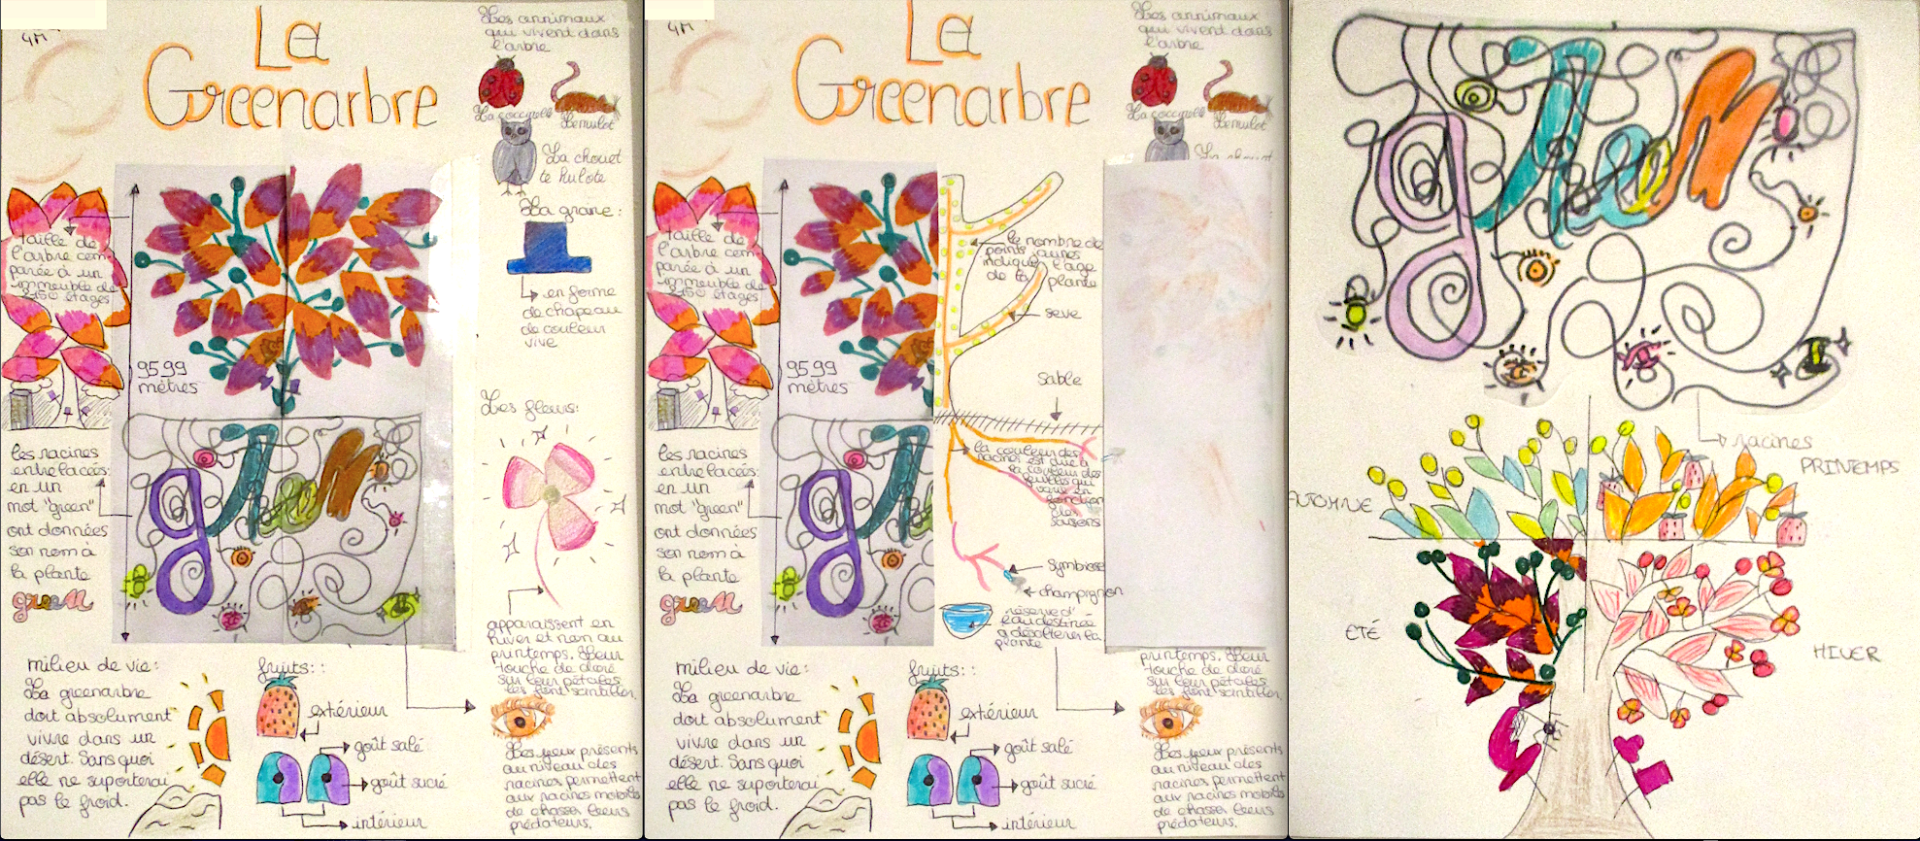 4M
La
Greenarbre
Les annimaux
qui vivent dans
l'arbre
La coccinelle
Le mulot
La chouet
te hulote
taille de
l'arbre com-
parée à un
immeuble de
150 étages
La graine:
en forme
de chapeau
de couleur
vive
9599
mètres
Les fleurs:
les racines
entrelacés
en un
mot "green"
ont données
son nom à
la plante
green
green
apparaissent en
hiver et non au
printemps. Leur
touche de doré
sur leur pétales
les font scintiller.
milieu de vie:
La greenarbre
doit absolument
vivre dans un
désert. Sans quoi
elle ne suporterai
pas le froid.
fruits::
extérieur
goût salé
goût sucré
intérieur
Les yeux présents
au niveau des
racines permettent
aux racines mobiles
de chasser leurs
prédateurs.
4M
La
Greenarbre
Les annimaux
qui vivent dans
l'arbre
La coccinelle
Le mulot
La chouet
taille de
l'arbre com-
parée à un
immeuble de
150 étages
le nombre de
points jaunes
indique l'age
de la plante
seve
9599
mètres
sable
les racines
entrelacés
en un
mot "green"
ont données
son nom à
la plante
green
gr
la couleur des
racines est due à
la couleur des
feuilles qui
varie en
fonction
des
saisons
symbiose
champignon
réserve d'
eau destinée
a désaltérer la
plante
printemps. Leur
touche de doré
sur leur pétales
les font scintiller.
milieu de vie:
La greenarbre
doit absolument
vivre dans un
désert. Sans quoi
elle ne suporterai
pas le froid.
fruits::
extérieur
goût salé
goût sucré
intérieur
Les yeux présents
au niveau des
racines permettent
aux racines mobiles
de chasser leurs
prédateurs.
green
racines
PRINTEMPS
AUTOMNE
ETÉ
HIVER